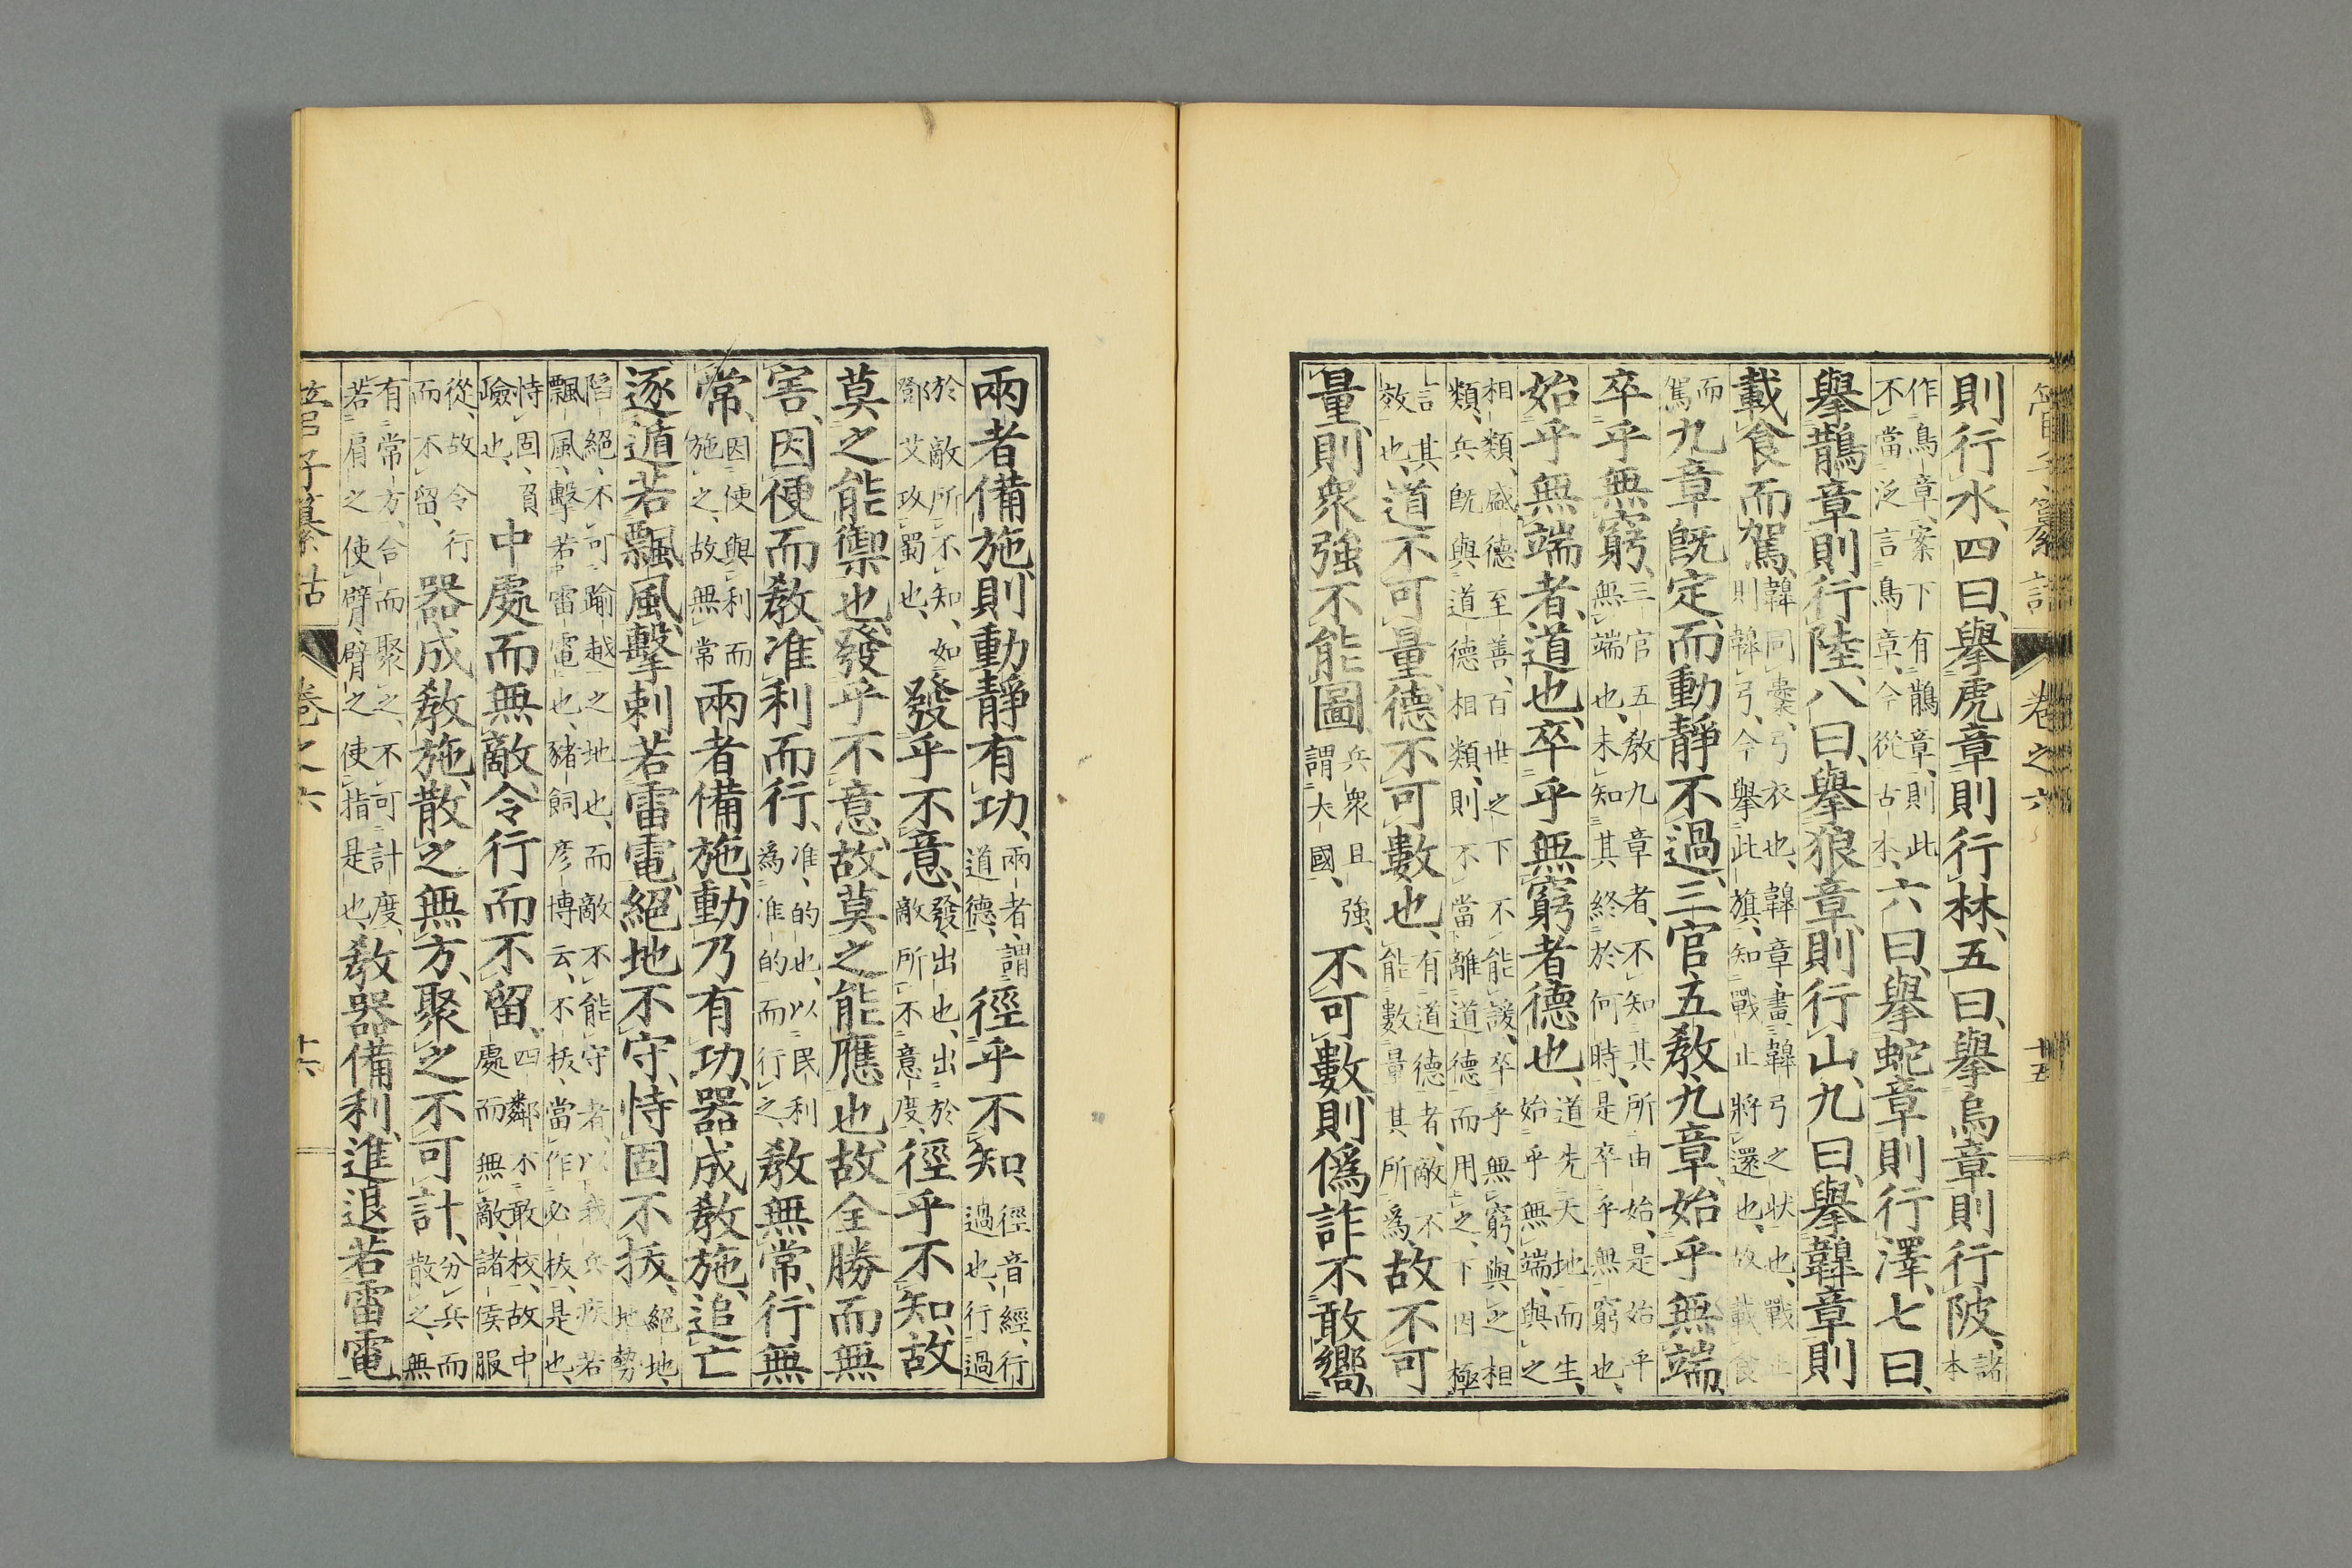 管子纂詁 卷之六 十五
則行水、四曰、擧虎章、則行林、五曰、擧烏章則行陂、諸本
作鳥章、案下有鵲章、則此不當泛言鳥章、今從古本、六曰、擧蛇章則行澤、七曰、
擧鵲章則行陸、八曰、擧狼章、則行山、九曰、擧韟章則
載食而駕、韟同櫜、弓衣也、韟章、畫韟弓之状也、戰止則韟弓、今擧此旗、知戰止將還也、故載食
而駕九章旣定、而動靜不過、三官五敎九章、始乎無端、
卒乎無窮、三官五敎九章者、不知其所由始、是始乎無端也、未知其終於何時、是卒乎無窮也、
始乎無端者、道也、卒乎無窮者德也、道先天地而生、始乎無端、與之
相類、盛德至善、百世之下、不能諼、卒乎無窮、與之相類、兵旣與道德相類、則不當離道德而用之、下因極
言其效也、道不可量、德不可數也、有道德者、敵不能數量其所爲、故不可
量、則衆強不能圖、兵衆且強、謂大國、不可數、則僞詐不敢嚮、
兩者備施、則動靜有功、兩者、謂道德、徑乎不知、徑音經、行過也、行過
於敵所不知、如鄧艾攻蜀也、發乎不意、發、出也、出於敵所不意度、徑乎不知、故
莫之能禦也、發乎不意、故莫之能應也、故全勝而無
害、因便而敎、准利而行、准、的也、以民利爲准的而行之、敎無常、行無
常、因便與利而施之、故無常兩者備施、動乃有功、器成敎施、追亡
逐遁若飄風、擊刺若雷電、絕地不守、恃固不拔、絕地、地勢
陷絕、不可踰越之地也、而敵不能守者、以我兵疾若飄風、擊若雷電也、豬飼彥博云、不拔、當作必拔、是也、
恃固、負險也、中處而無敵、令行而不留、四鄰不敢校、故中處而無敵、諸侯服
從、故令行而不留、器成敎施、散之無方、聚之不可計、分兵而散之、無
有常方、合而聚之、不可計度、若肩之使臂、臂之使指是也、敎器備利、進退若雷電、
管子纂詁 卷之六 十六